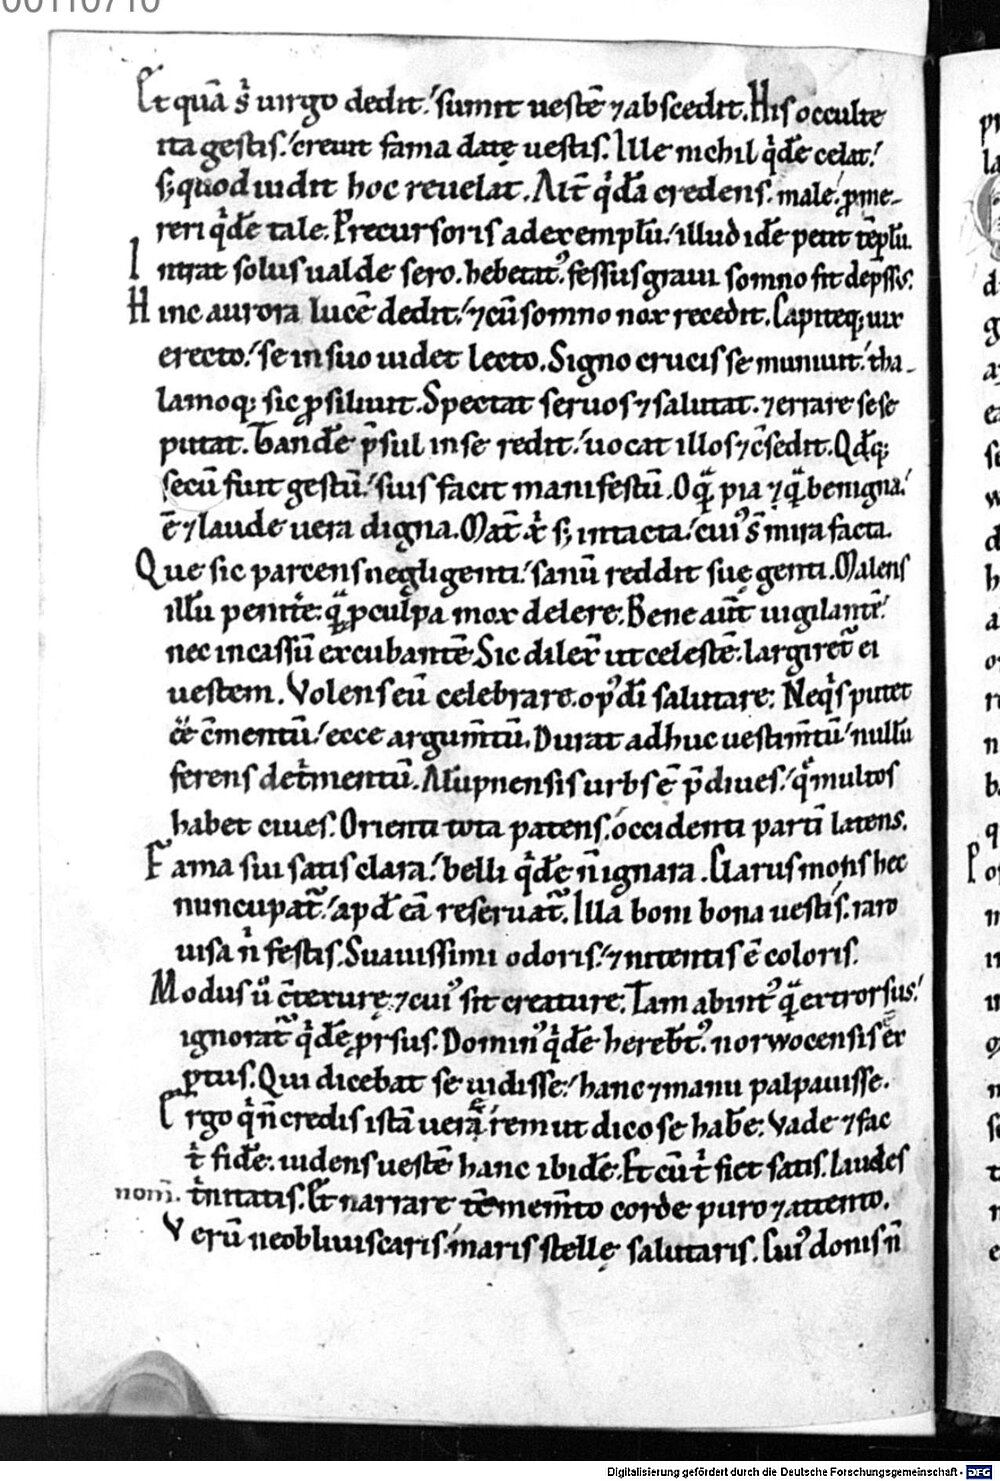 00110710
Et quā s̄ uirgo dedit.' sumit uestē ⁊ abscedit. His occulte
ita gestis.' creuit fama datę uestis. Ille nichil q̇dē celat.'
s; quod uidit hoc reuelat. Alt̄ q̇dā credens. male ꝓme-
reri q̇dē tale. Precursoris ad exemplū.' illud idē petit tēplū.
Intrat solus ualde sero. hebetatꝰ. fessus graui somno fit dep̄ssꝰ.
Hinc aurora lucē dedit.' ⁊ cū somno nox recedit. Capiteq; uix
erecto.' se in suo uidet lecto. Signo crucis se muniuit.' tha-
lamoq; sic ꝓsiliuit. Spectat seruos ⁊ salutat. ⁊ errare sese
putat. Tandē p̄sul in se redit.' uocat illos ⁊ c̄sedit. Qd̄q;
secū fuit gestū.' suis facit manifestū. O qͣ̄ pia ⁊ qͣ̄ benigna.'
ē ⁊ laude uera digna. Mat̄ x̄ s; intacta.' cuiꝰ s̄ mira facta.
Que sic parcens negligenti.' sanū reddit suę genti. Malens
illū penit̄e. qͣ̄ ꝑ culpa mox delere. Bene aūt uigilantē.'
nec incassū excubantē. Sic dilex̄ ut celestē. largiret᷑ ei
uestem. Volens eū celebrare. opꝰ dī salutare. Neq's putet
c̄ē c̄mentū.' ecce argum̄tū. Durat adhuc uestim̄tū.' nullū
ferens det̄mentū. Alupnensis urbs ē p̄diues.' q̄ multos
habet ciues. Orienti tota patens. occidenti partī latens.
Fama sui satis clara.' belli q̇dē n̄ ignara. Clarus mons hec
nuncupat᷑.' apd̄ eā reseruat᷑. Illa boni bona uestis. raro
uisa n̄ festis. Suauissimi odoris.' ⁊ nitentis ē coloris.
Modus u̇ c̄texurę. ⁊ cuiꝰ sit creature. Tam ab intꝰ qͣ̄ extrorsus.'
ignorat᷑ q̇dē ꝓrsus. Dominꝰ q̇dē herebt̄ꝰ. norwocensis ēx
ꝑtus. Qui dicebat se uidisse.' hanc ⁊ manu palpauisse.
Ergo q̇ n̄ credis istā uerā.' rem ut dico se habē. Vade ⁊ fac
t̄ fidē. uidens uestē hanc ibidē. Et cū t̄ fiet satis. laudes
nom̄. t̄nitatis. Et narrare tē mem̄to corde puro ⁊ attento.
Verū ne obliuiscaris. maris stellę salutaris. Cuiꝰ donis n̄
Digitalisierung gefördert durch die Deutsche Forschungsgemeinschaft - DFG